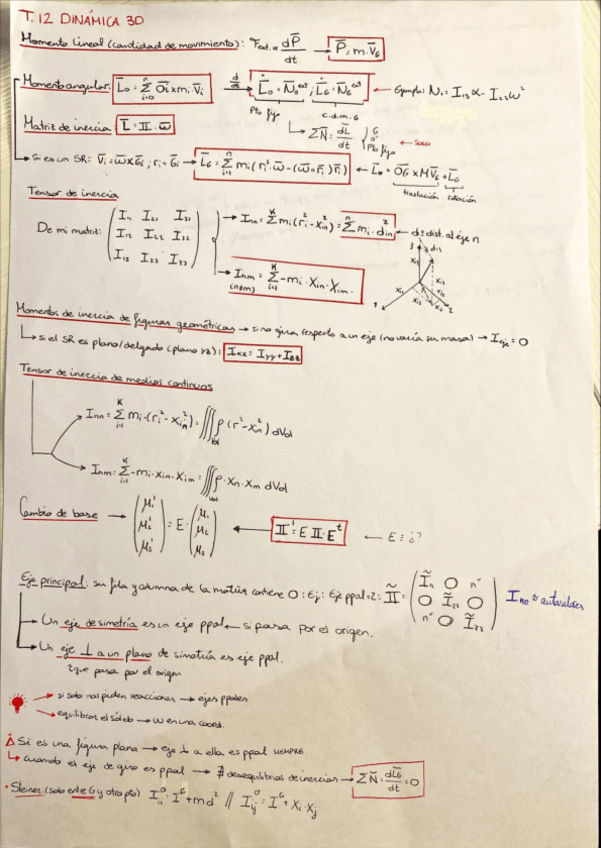 T.12 DINÁMICA 3D
Momento Lineal (cantidad de movimiento): F̄ext = dP̄/dt → P̄ = m·V̄G
Momento angular: L̄o = Σ(i=0, n) Ōi × mi·V̄i d/dt → L̄̇o = N̄o^ext ; L̄̇G = N̄G^ext ← Ejemplo: N1 = I13 α - I23 ω²
Pto fijo c.d.m. G
↳ ΣN̄ = dL̄/dt G o Pto fijo ← SOLO
Matriz de inercia: L̄ = II·ω̄
Si es un SR: V̄i = ω̄ × Ḡi ; ri = Ḡi → L̄G = Σ(i=1, n) mi(ri²·ω̄ - (ω̄·r̄i) r̄i) ← L̄o = ŌG × M V̄G + L̄G
traslación rotación
Tensor de inercia
De mi matriz: (I11 I21 I31
I12 I22 I32
I13 I23 I33)
→ Inn = Σ(i=1, K) mi(ri² - xin²) = Σ(i=1, n) mi·din² ← d: dist. al eje n
→ Inm = Σ(i=1, K) -mi·xin·xim.
(n≠m)
Momentos de inercia de figuras geométricas → si no gira respecto a un eje (no varía su masa) → Ieje = 0
↳ si el SR es plano/delgado (plano yz): Ixx = Iyy + Izz
Tensor de inercia de medios continuos
Inn = Σ(i=1, K) mi·(ri² - xin²) = ∭vol ρ (r² - xin²) dVol
Inm = Σ(i=1, K) -mi·xin·xim = ∭vol ρ·xn·xm dVol
Cambio de base → (μ1' μ2' μ3') = E·(μ1 μ2 μ3) ← II' = E II·E^t ← E = ¿?
Eje principal: su fila y columna de la matriz contiene 0 : Ej: Eje ppal=2 : ĨI = (Ĩ11 0 n'
0 Ĩ22 0
n' 0 Ĩ33) Ino ≈ autovalores
Un eje de simetría es un eje ppal ← si pasa por el origen.
Un eje ⊥ a un plano de simetría es eje ppal.
que pasa por el origen
→ si solo nos piden reacciones → ejes ppales
→ equilibrar el sólido → ω en una coord.
Si es una figura plana → eje ⊥ a ella es ppal SIEMPRE
↳ cuando el eje de giro es ppal → ∄ desequilibrios de inercias → ΣN̄ = dL̄G/dt = 0
· Steiner (solo entre G y otro pto) Iii^O = I^G + md² // Iij^O = I^G + xi·xj